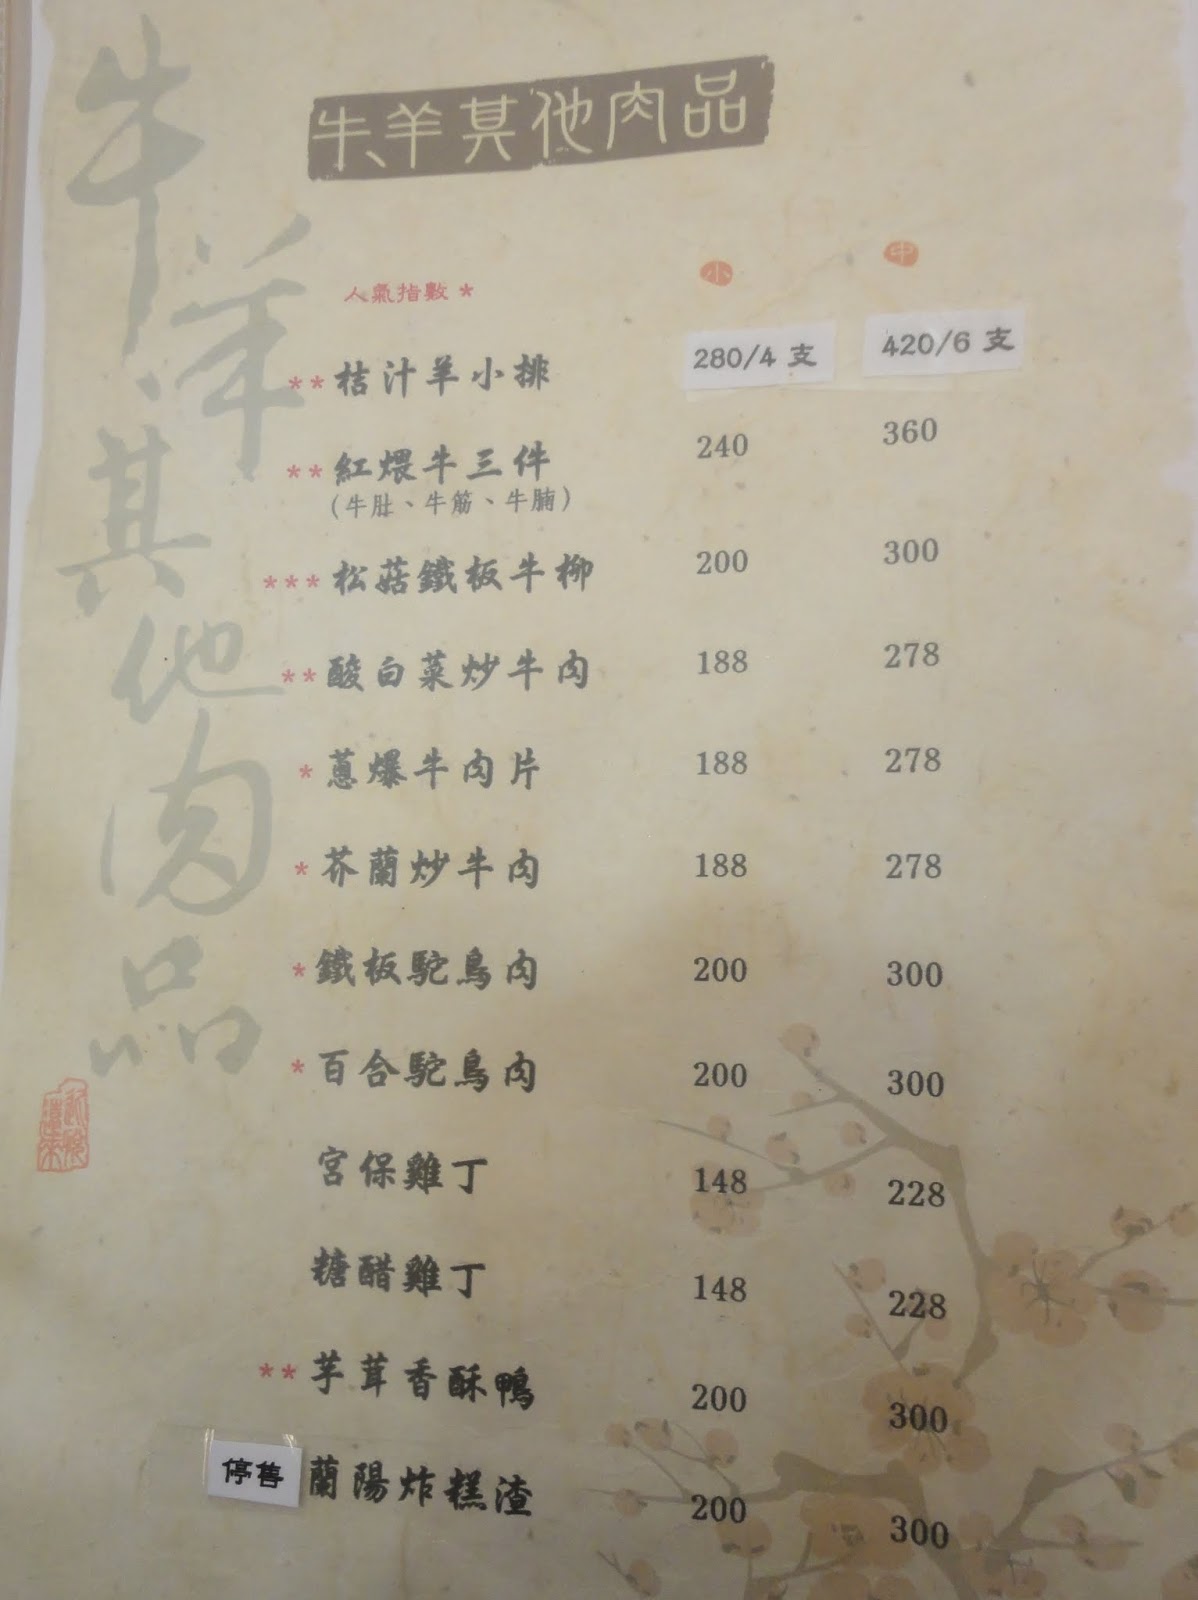 牛羊其他肉品
牛、羊其他肉品
人氣指數 * 小 中
** 桔汁羊小排 280/4 支 420/6 支
** 紅煨牛三件 240 360
(牛肚、牛筋、牛腩)
*** 松菇鐵板牛柳 200 300
** 酸白菜炒牛肉 188 278
* 蔥爆牛肉片 188 278
* 芥蘭炒牛肉 188 278
* 鐵板鴕鳥肉 200 300
* 百合鴕鳥肉 200 300
宮保雞丁 148 228
糖醋雞丁 148 228
** 芋茸香酥鴨 200 300
停售 蘭陽炸糕渣 200 300